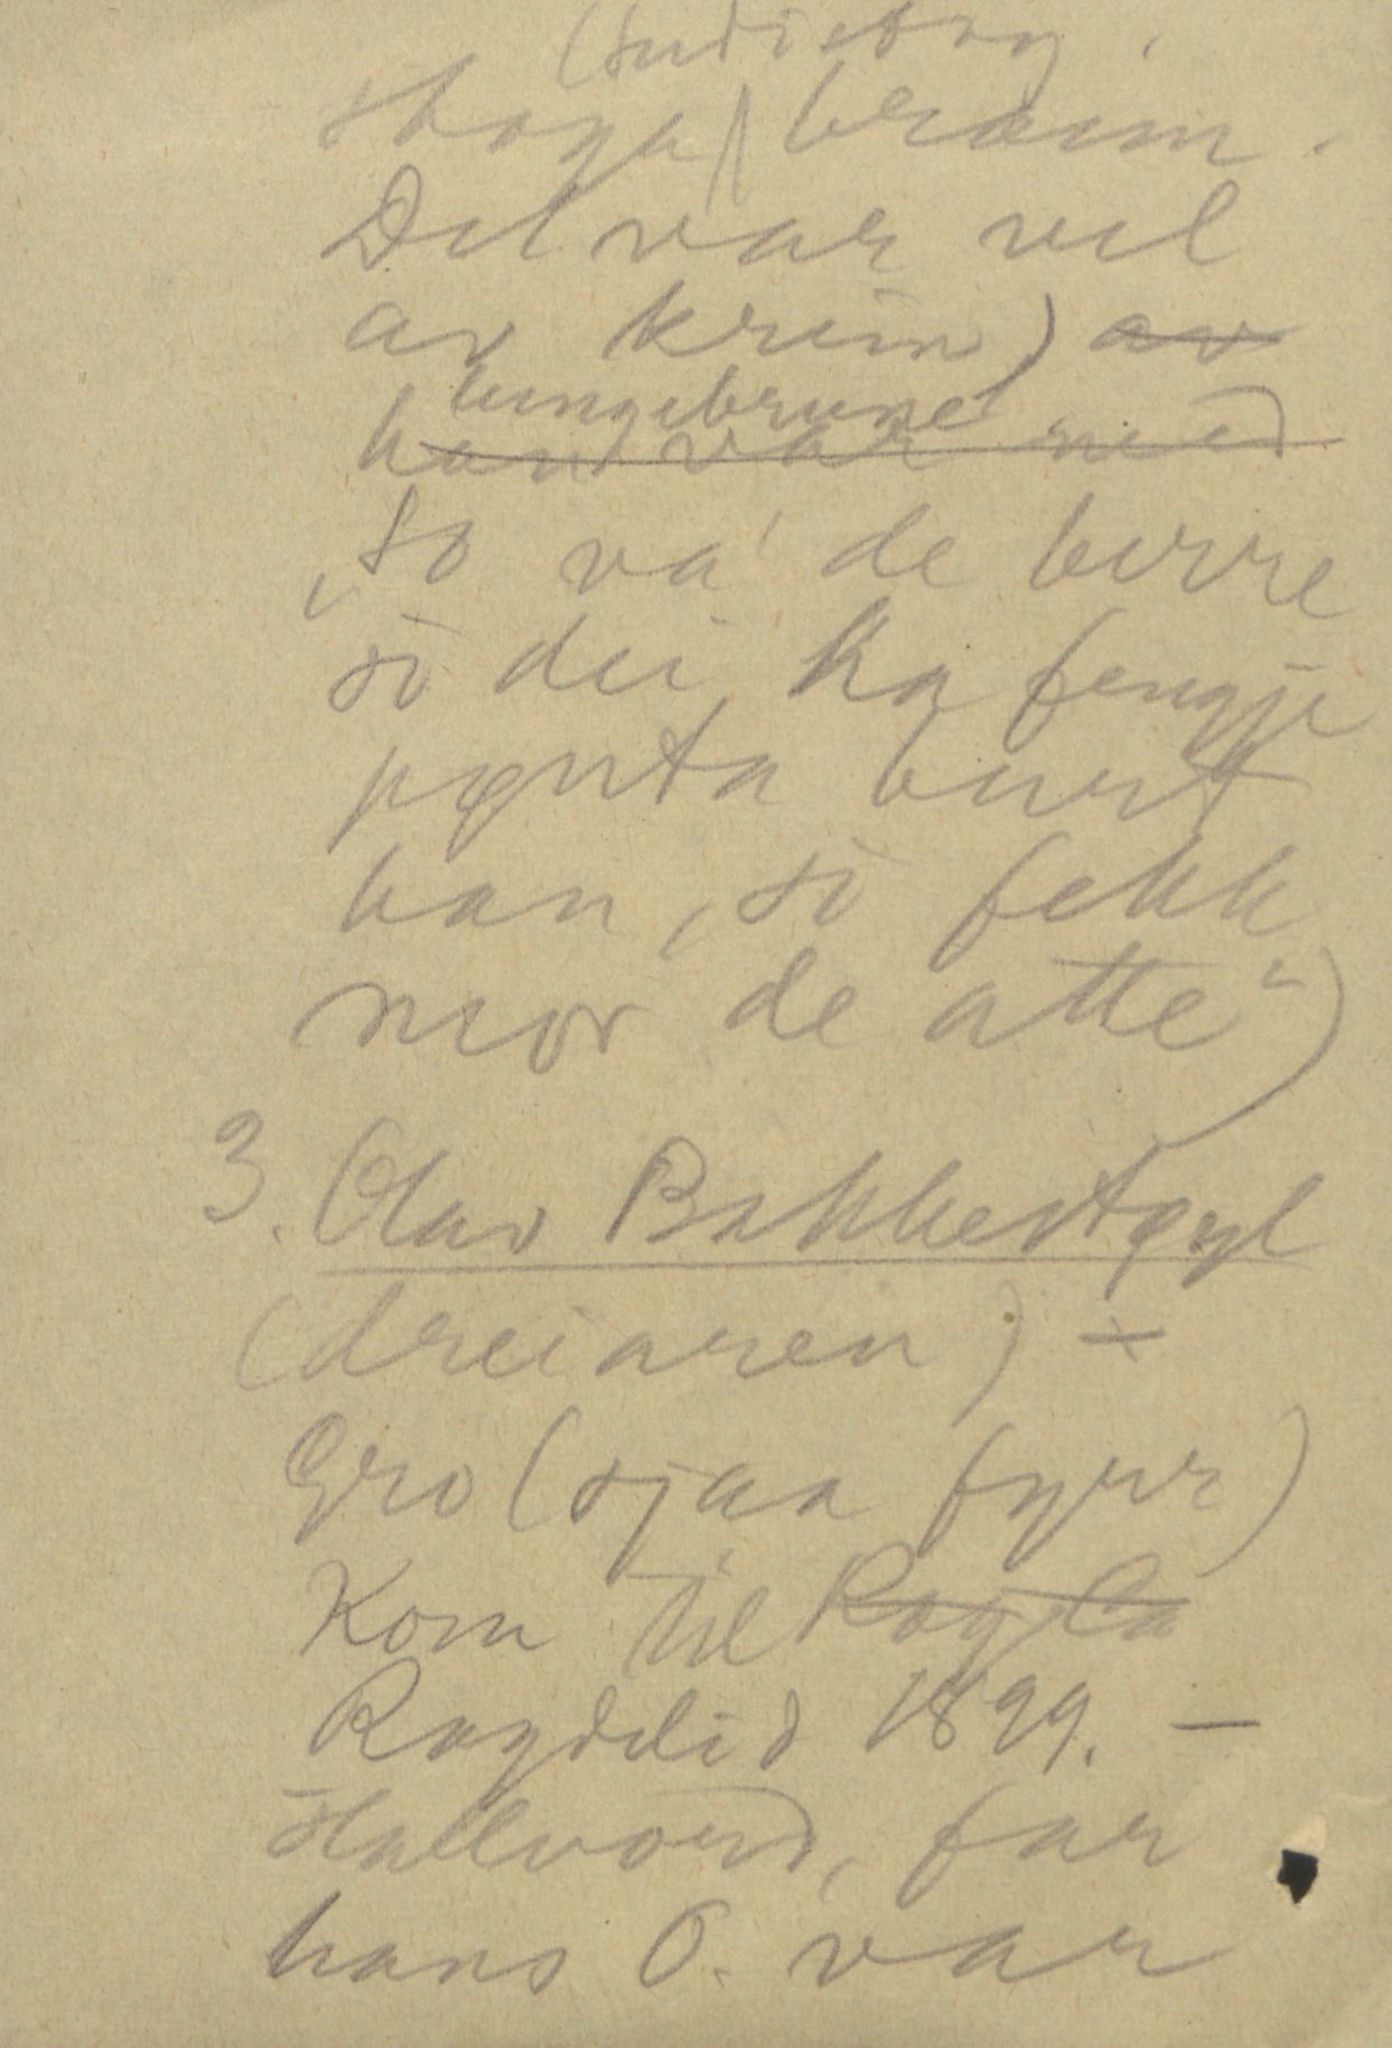 stoga brann.
Det var vel
av krim) av
lungebrune
hand var med
"So va' de berre
so dei ha fengje
pusta burt
han, so fekk
mor de atte")
3. Olav Bakkestøyl
(dreiaren) +
Gro (sjaa fyrr)
Kom til
Rogdelid 1899. –
Hallvord, far
hans O. var